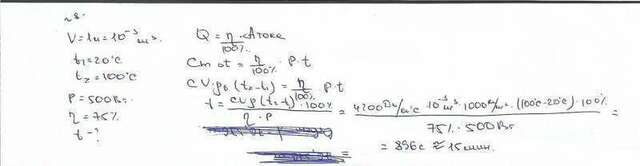 №8.
V=1л=10⁻³м³.
t₁=20°C
t₂=100°C
P=500Вт.
η=75%
t-?
Q = η/100% · Aтока
cm∆t = η/100% · P·t
cVρ₀(t₂-t₁) = η/100% · P·t
t = cVρ(t₂-t₁)·100% / η·P = 4200Дж/кг°C · 10⁻³м³ · 1000кг/м³ · (100°C-20°C) · 100% / 75% · 500Вт =
= 896с ≈ 15мин.